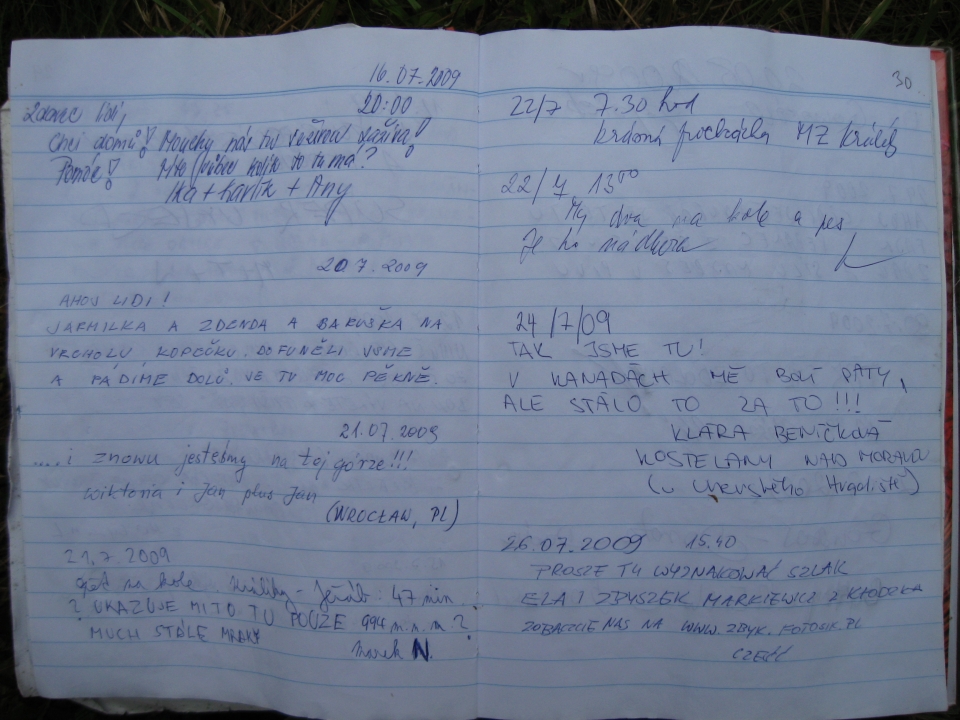 16.07.2009
20:00
Zdravec lidi,
Chci domů! Mouchy nás tu
Pomóc! to tu má?
Ika + Karlík + Any
20.7.2009
AHOJ LIDI!
JARMILKA A ZDENDA A BARUŠKA NA
VRCHOLU KOPEČKU. DOFUNĚLI JSME
A PÁDÍME DOLŮ. JE TU MOC PĚKNĚ.
21.07.2009
.....i znowu jesteśmy na tej górze!!!
Wiktoria i Jan plus Jan
(WROCŁAW, PL)
21.7.2009
opět na kole - Jeřáb: 47 min
? UKAZUJE MI TO TU POUZE 994 m.n.m.?
MUCH STÁLE MRAKY
Marek N.
30
22/7 7.30 hod
krásná procházka MZ Králíky
22/7 13⁰⁰
My dva na kole a pes
Je to nádhera
24/7/09
TAK JSME TU!
V KANADÁCH MĚ BOLÍ PATY,
ALE STÁLO TO ZA TO!!!
KLÁRA BENÍČKOVÁ
KOSTELANY NAD MORAVOU
(u Uherského Hradiště)
26.07.2009 15.40
PROSZĘ TU WYZNAKOWAĆ SZLAK
ELA I ZBYSZEK MARKIEWICZ Z KŁODZKA
ZOBACZCIE NAS NA WWW.ZBYK.FOTOSIK.PL
CZEŚĆ